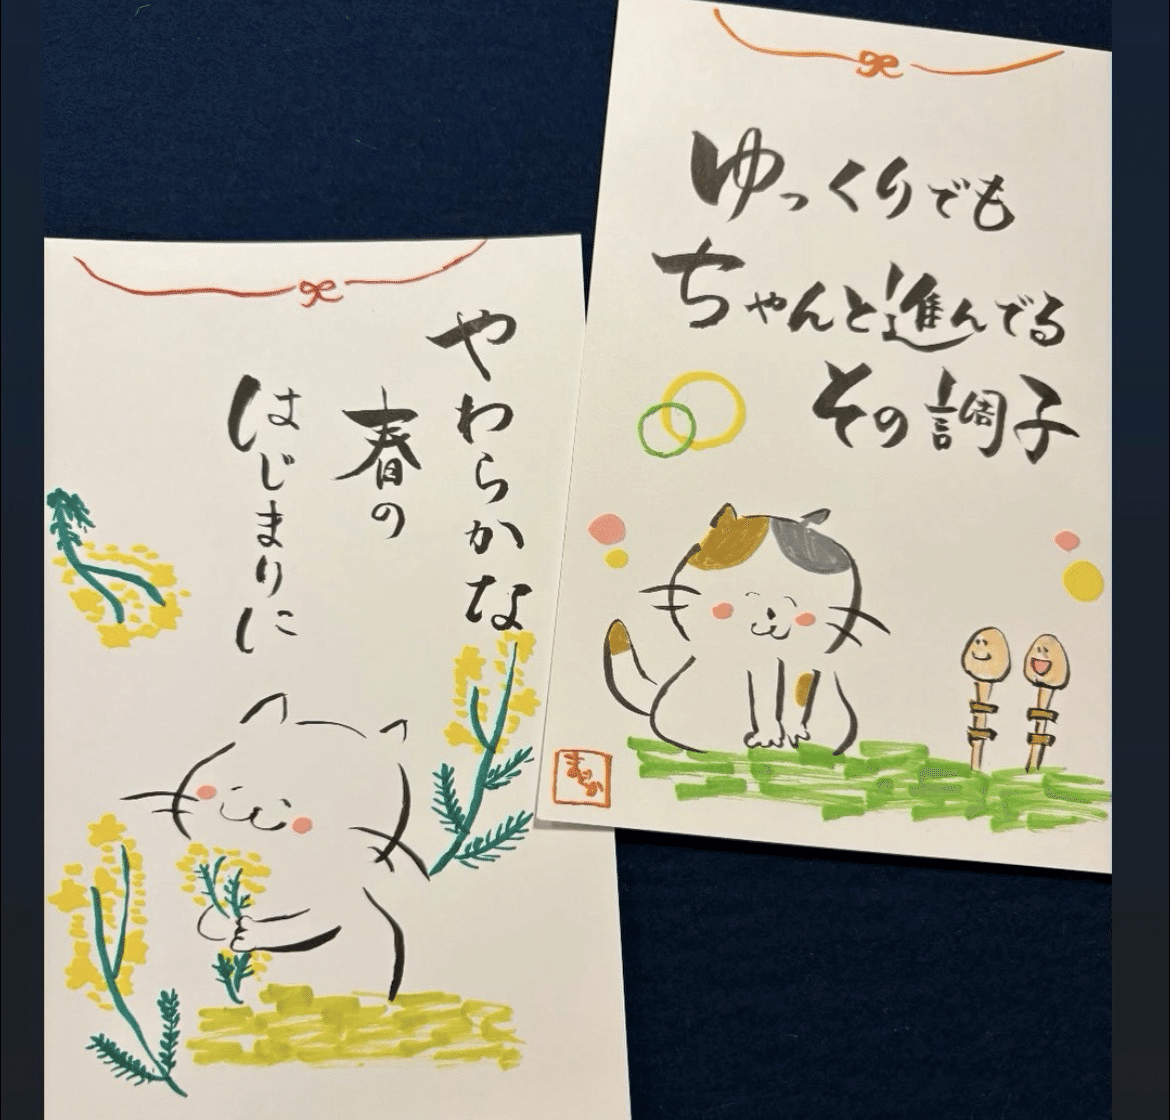 やわらかな
春の
はじまりに
ゆっくりでも
ちゃんと進んでる
その調子